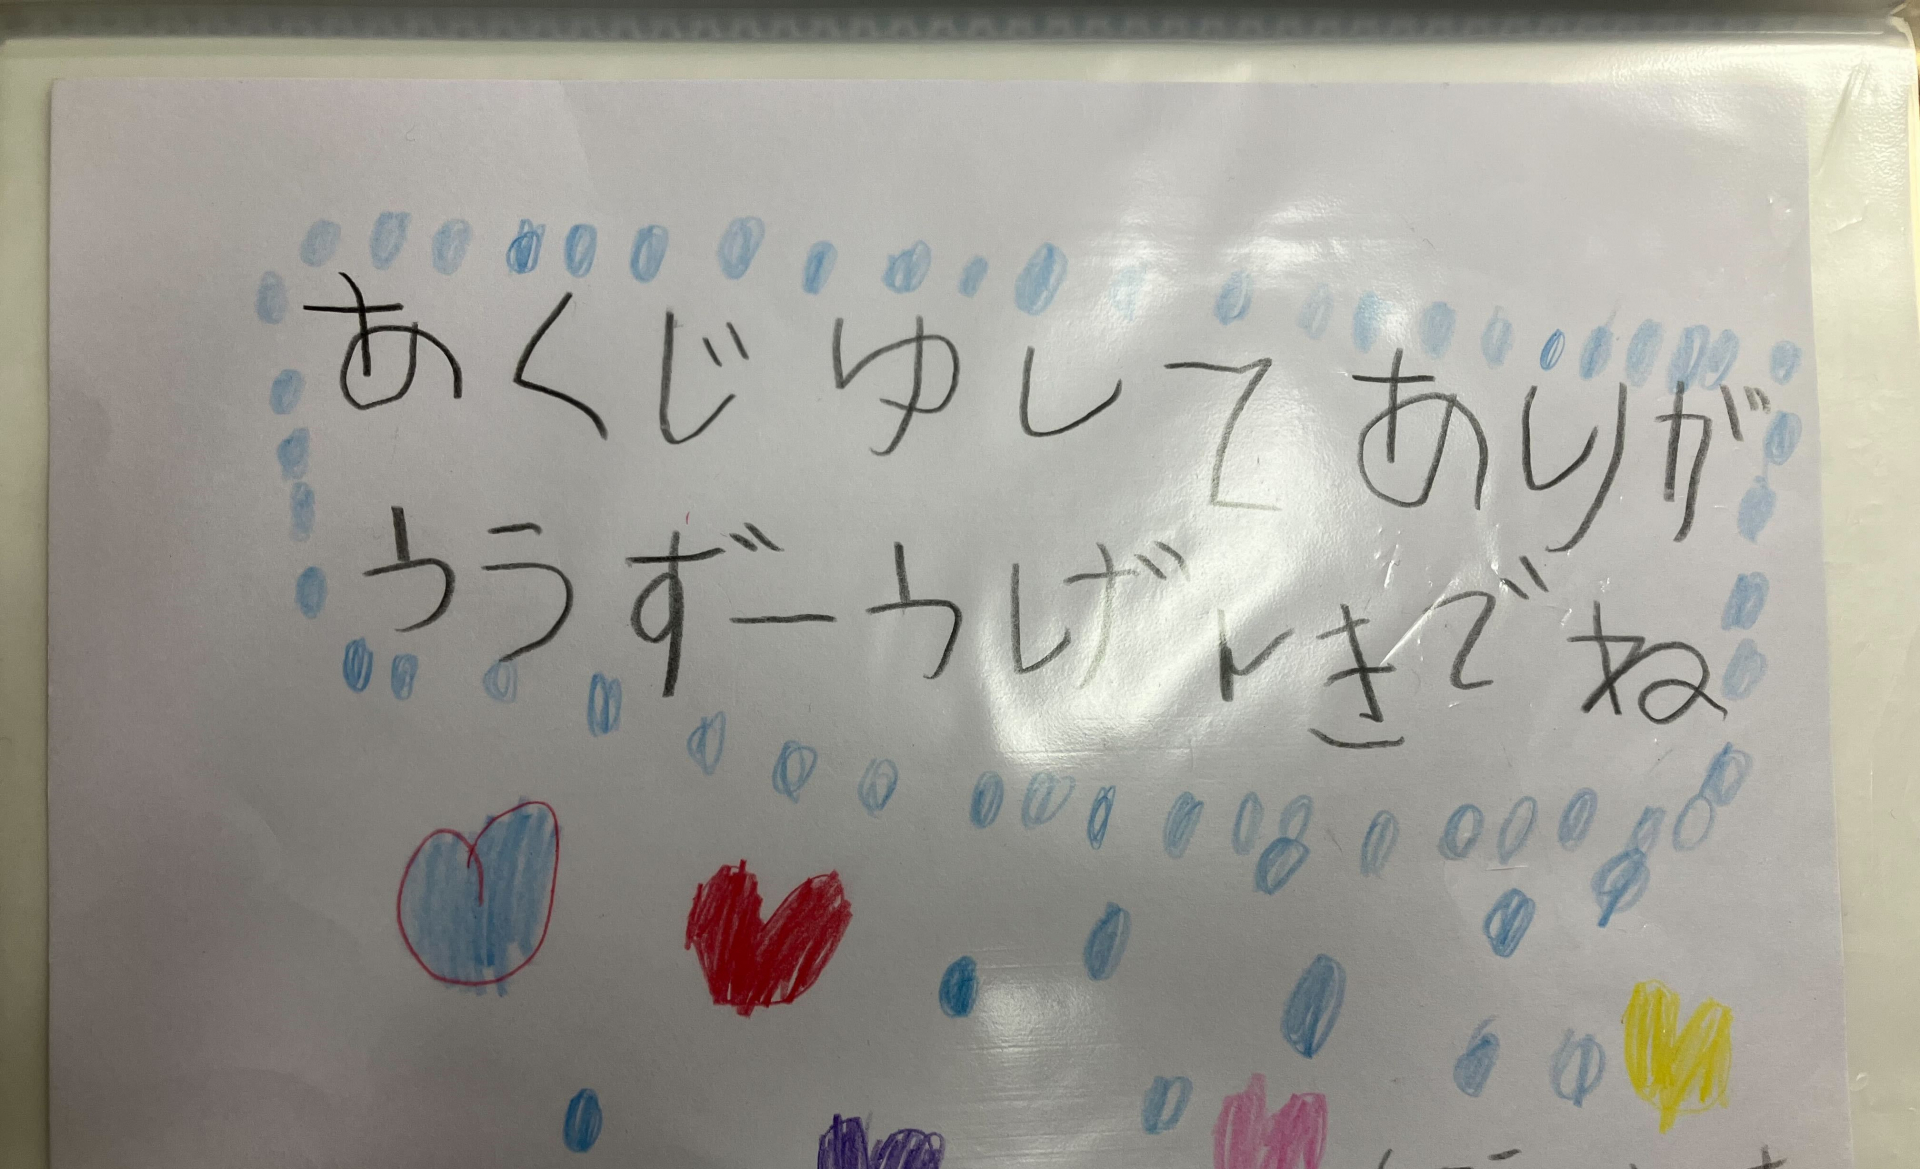 あくじゆしてありが
うずーっげんきでね